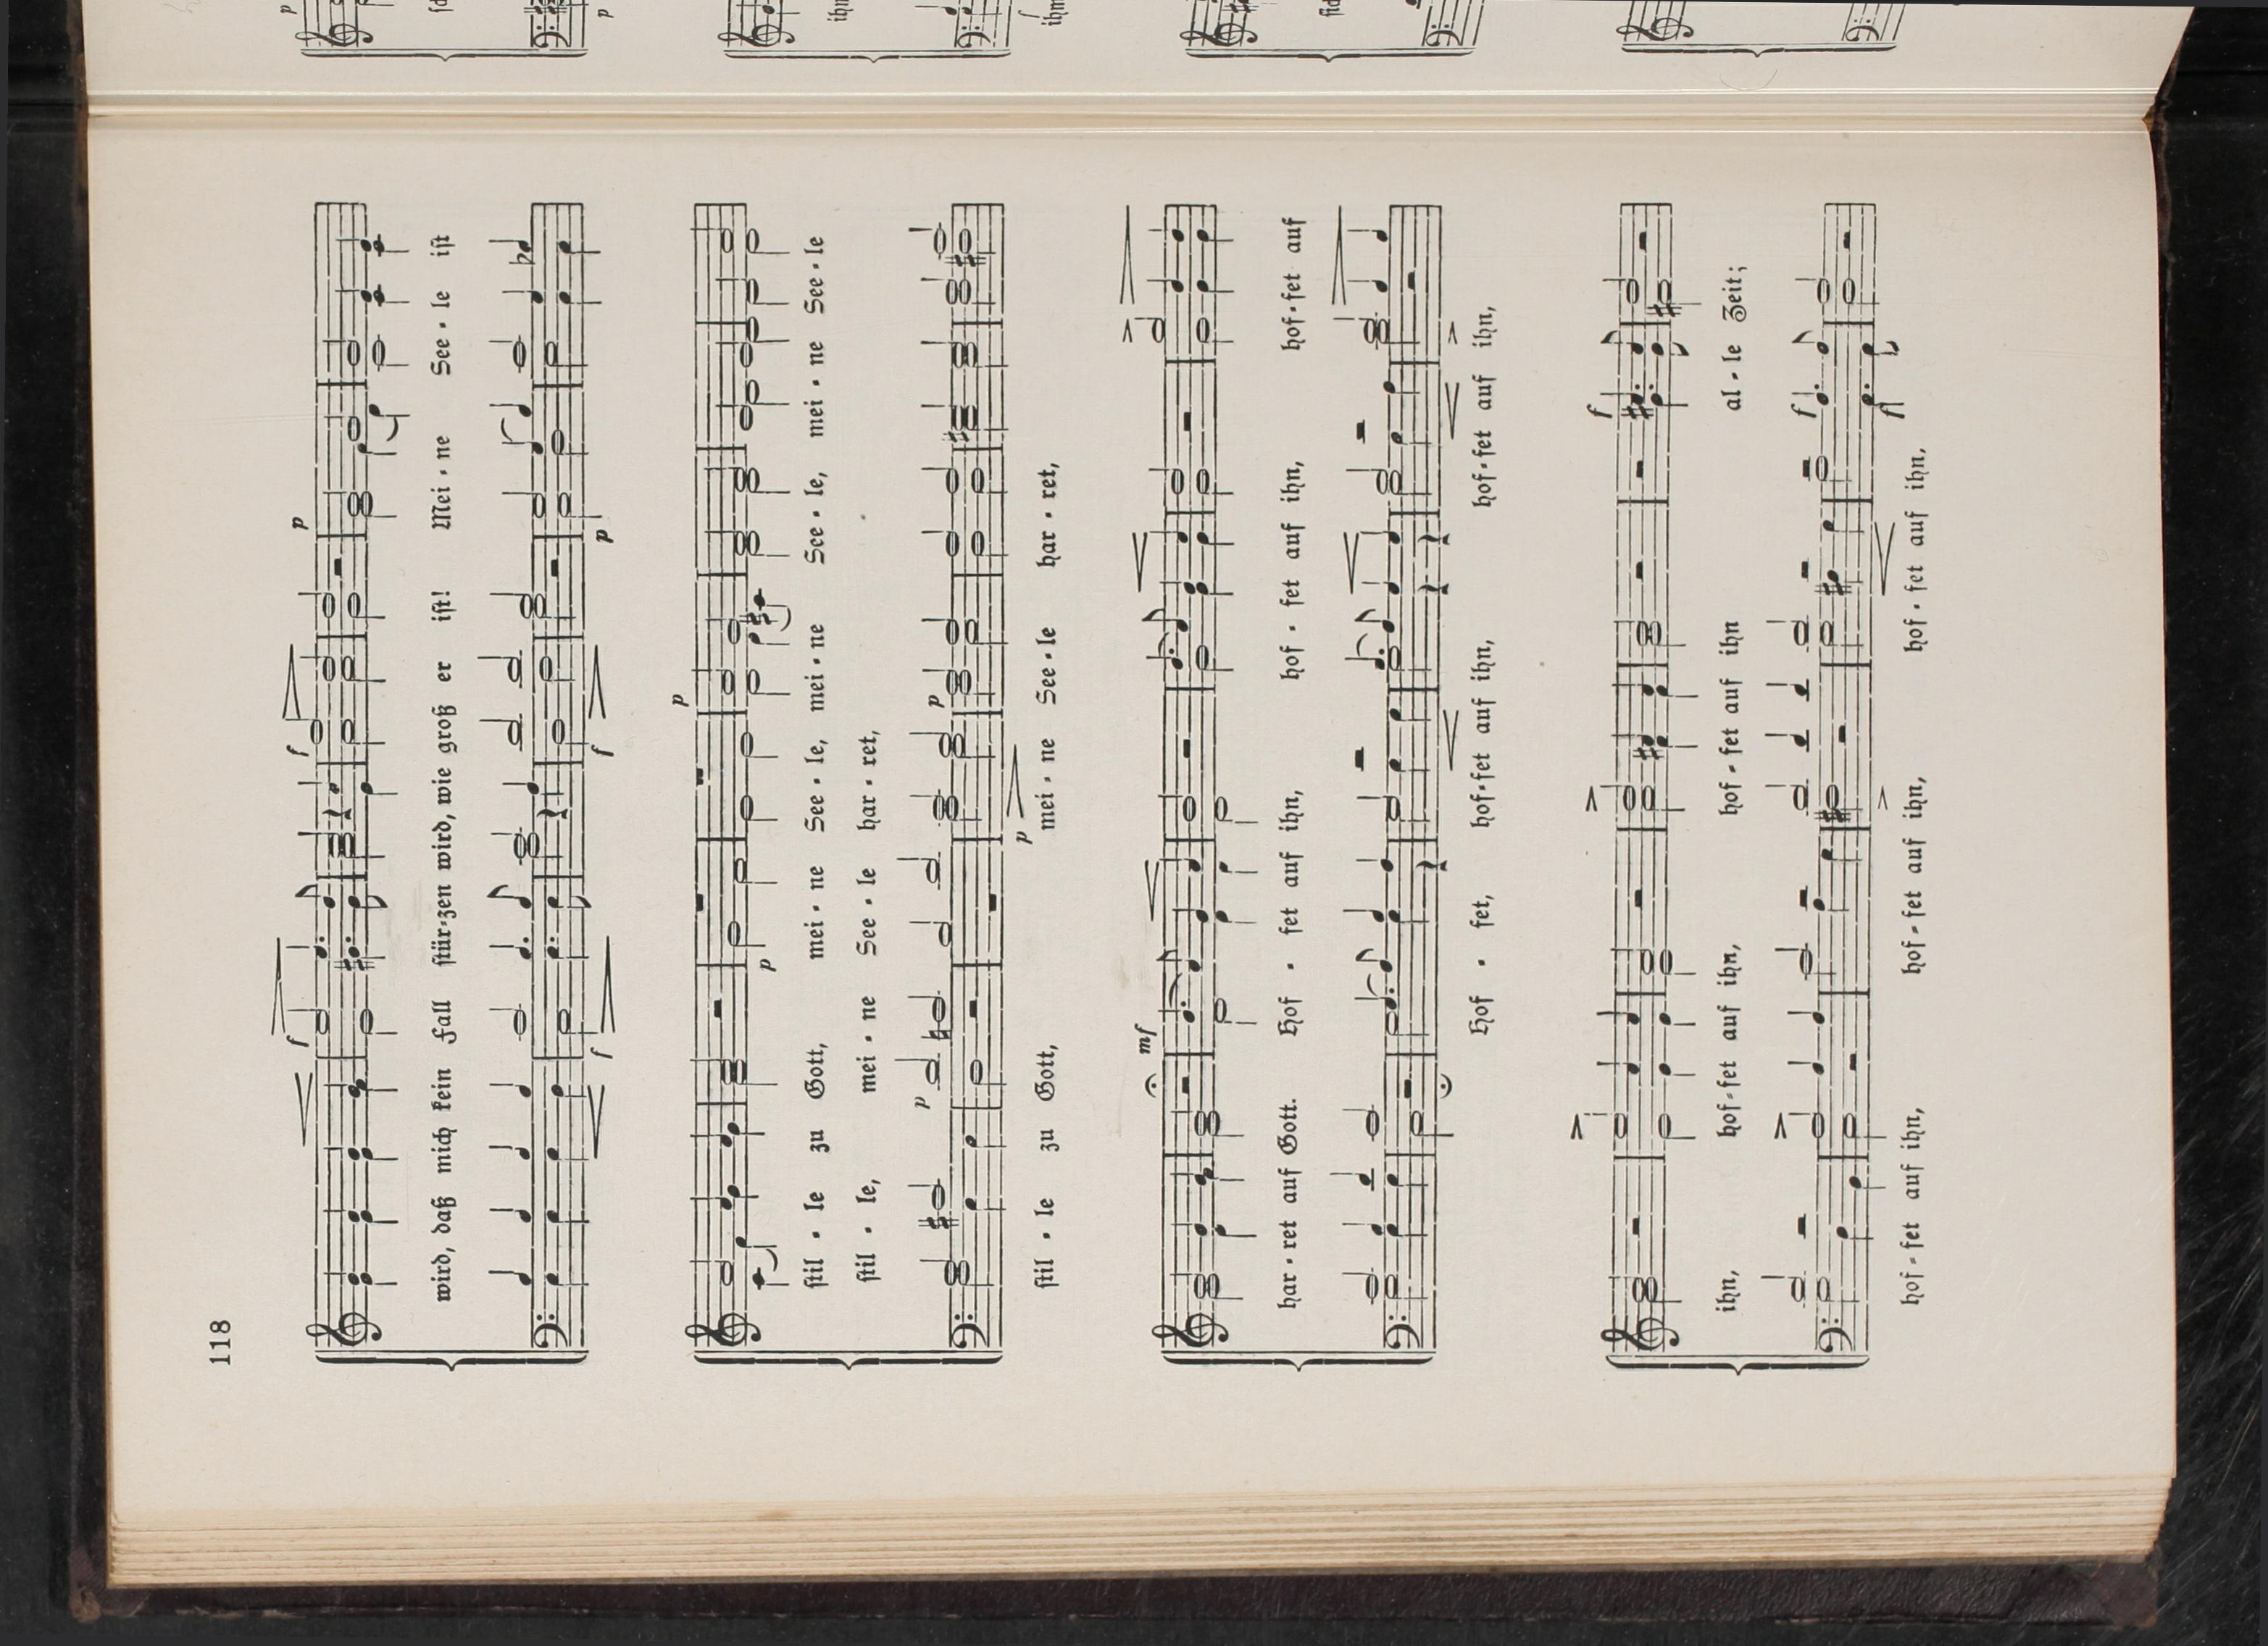 118
f f p
wird, daß mich kein Fall stür-zen wird, wie groß er ist! Mei-ne See-le ist
f f p
p p
stil-le zu Gott, mei-ne See-le, mei-ne See-le, mei-ne See-le
stil-le, mei-ne See-le har-ret,
p p
p mei-ne See-le har-ret,
stil-le zu Gott,
mf
har-ret auf Gott. Hof-fet auf ihn, hof-fet auf ihn, hof-fet auf
Hof-fet, hof-fet auf ihn, hof-fet auf ihn,
f
ihn, hof-fet auf ihn, hof-fet auf ihn al-le Zeit;
f
hof-fet auf ihn, hof-fet auf ihn, hof-fet auf ihn,
p
p
ihn
ihm